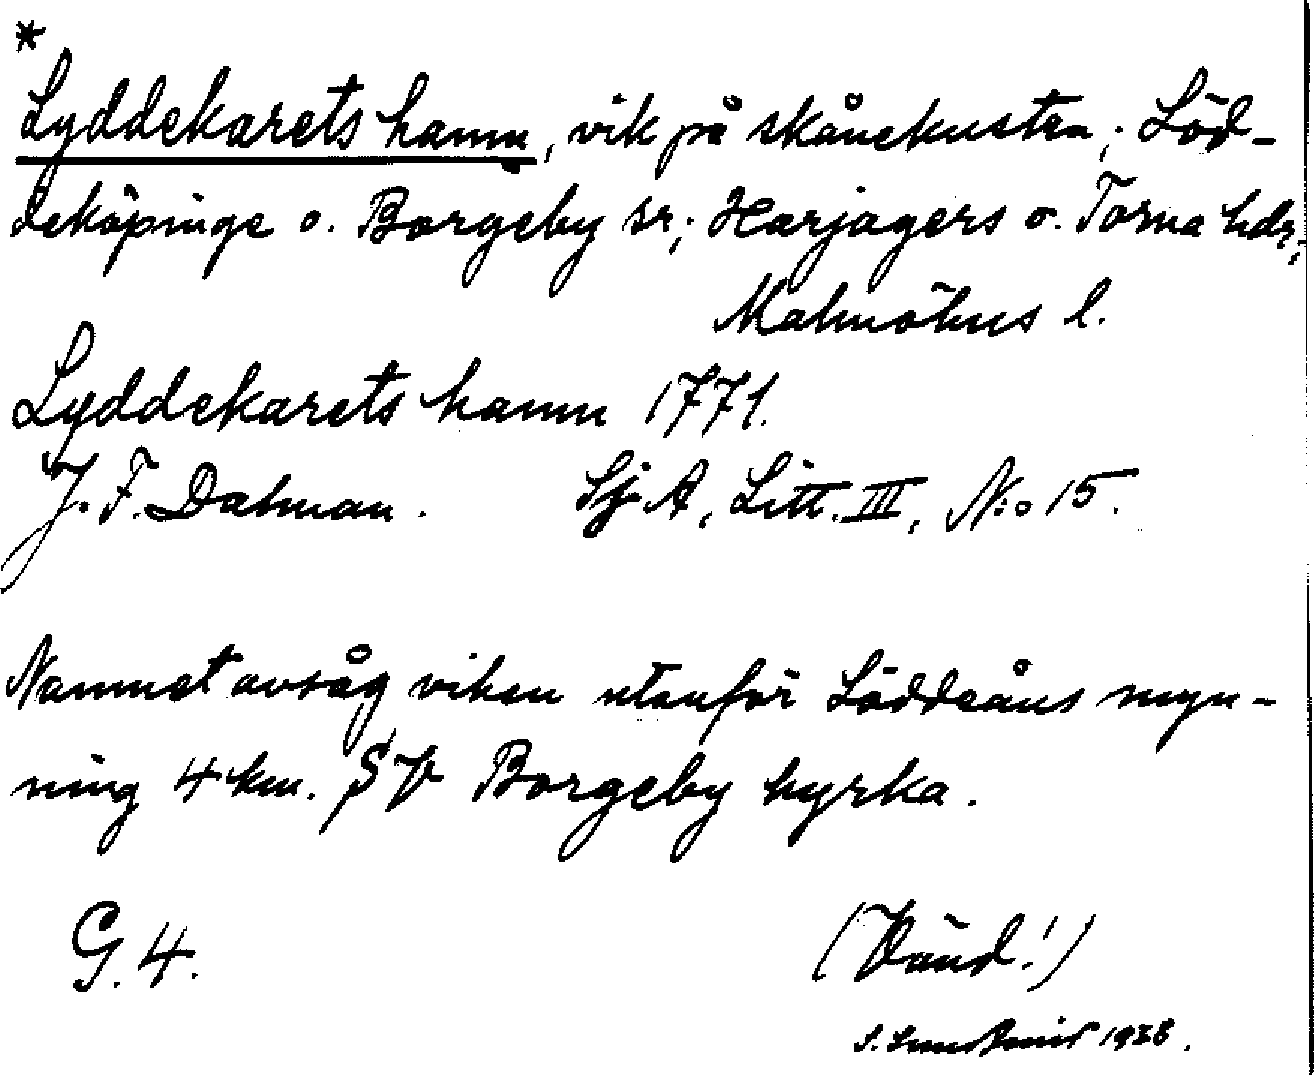 *
Lyddekarets hamn, vik på skånekusten; Löd-
deköpinge o. Borgeby sr; Harjagers o. Torna hdr,
Malmöhus l.
Lyddekarets hamn 1771.
J. F. Dalman. Sj A, Litt. III, N:o 15.
Namnet avsåg viken utanför Löddeåns myn-
ning 4 km. SV Borgeby kyrka.
G. 4.
(Vänd!)